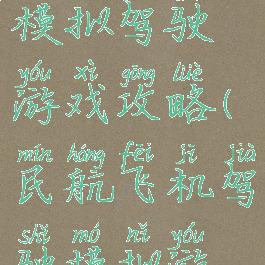 模拟驾驶
yóu xì gōng lüè
游戏攻略(
mín háng fēi jī jià
民航飞机驾
shǐ mó nǐ yóu
驶模拟游